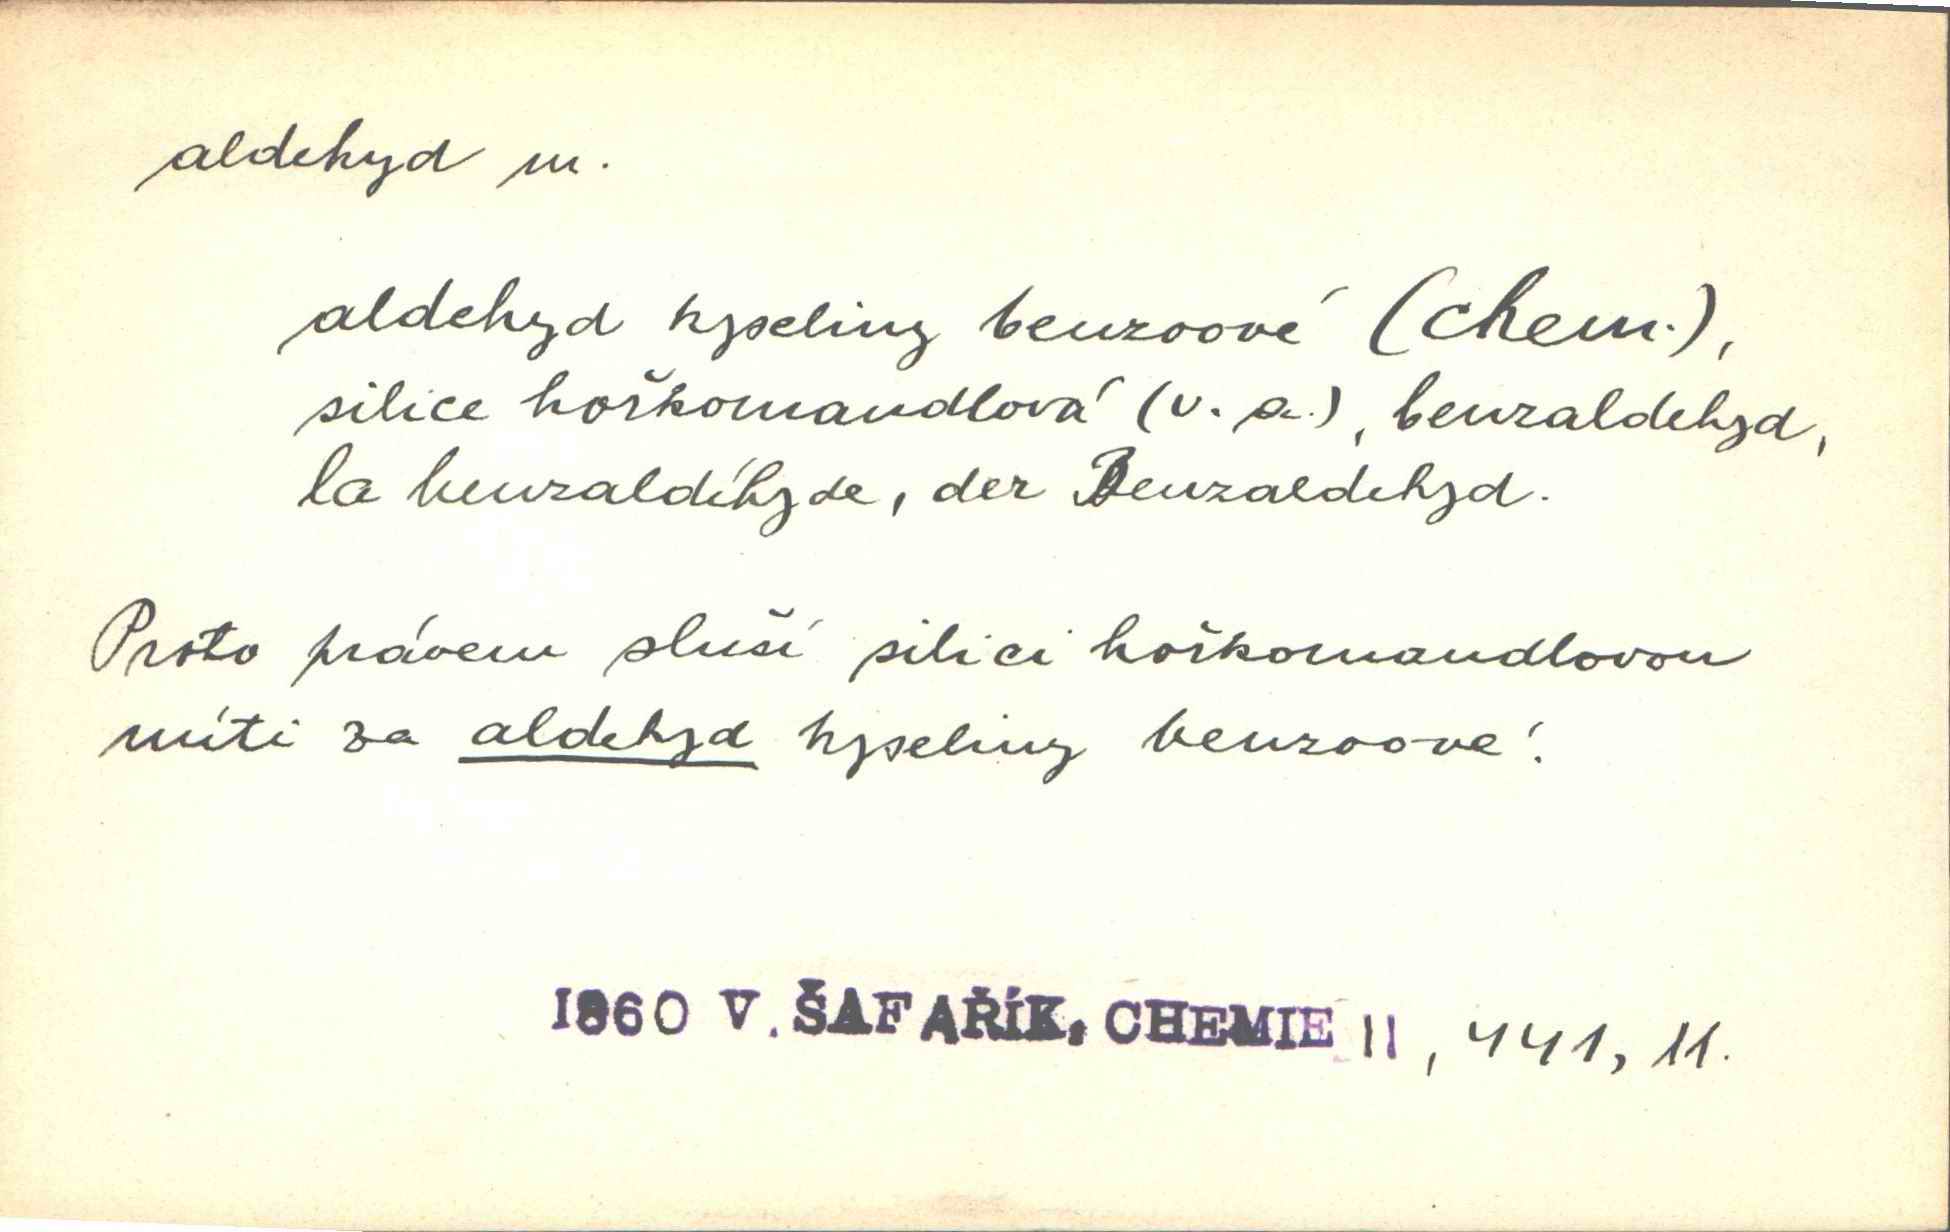 aldehyd m.
aldehyd kyseliny benzoové (chem.),
silice hořkomandlová (v. a.), benzaldehyd,
la benzaldéhyde, der Benzaldehyd.
Proto právem sluší silici hořkomandlovou
míti za aldehyd kyseliny benzoové.
1860 V. ŠAFAŘÍK, CHEMIE II, 441, 11.